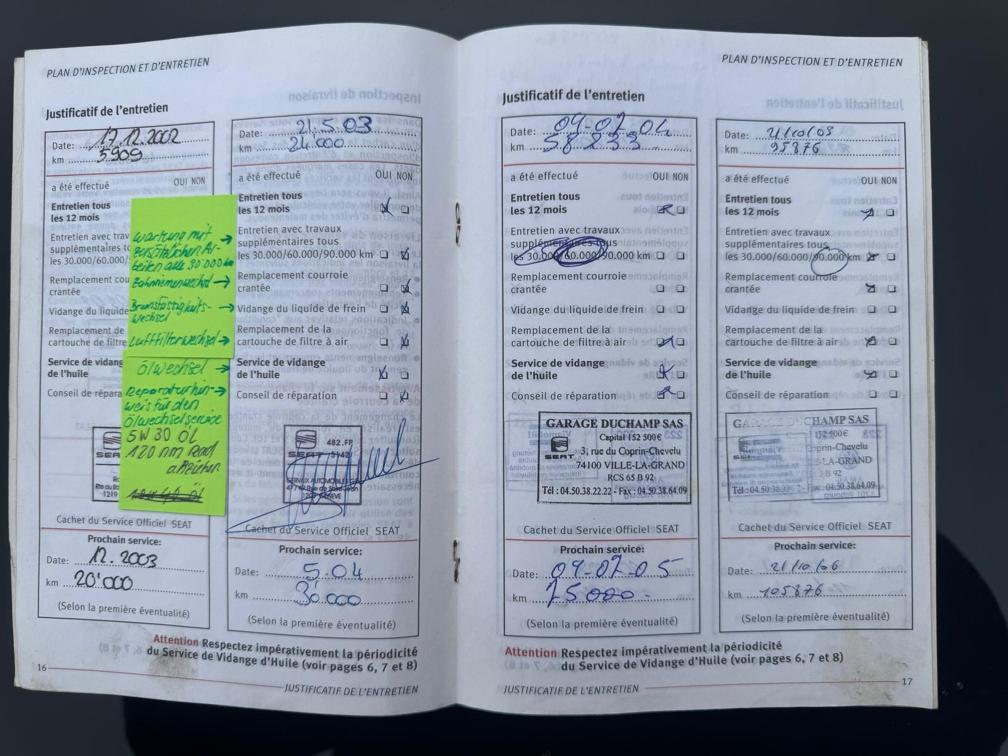 PLAN D'INSPECTION ET D'ENTRETIEN
Justificatif de l'entretien
Date: 17.12.2002
km 5909
a été effectué OUI NON
Entretien tous
les 12 mois
Entretien avec trav
supplémentaires to
les 30.000/60.000
Remplacement cou
crantée
Vidange du liquide
Remplacement de
cartouche de filtre
Service de vidang
de l'huile
Conseil de réparati
Wartung mit →
zusätzlichen Ar-
beiten alle 30 000 km
Zahnriemenwechsel →
Bremsflüssigkeits- →
wechsel
Luftfilterwechsel →
Ölwechsel →
Reparaturhin- →
weis für den
Ölwechselservice
5W30 Öl
120 nm Rad
SEAT
Rte du Bo
1219
Cachet du Service Officiel SEAT
Prochain service:
Date: 12.2003
km 20'000
(Selon la première éventualité)
Date: 21.5.03
km 24'000
a été effectué OUI NON
Entretien tous
les 12 mois
Entretien avec travaux
supplémentaires tous
les 30.000/60.000/90.000 km
Remplacement courroie
crantée
Vidange du liquide de frein
Remplacement de la
cartouche de filtre à air
Service de vidange
de l'huile
Conseil de réparation
SEAT
Cachet du Service Officiel SEAT
Prochain service:
Date: 5.04
km 30.000
(Selon la première éventualité)
Attention Respectez impérativement la périodicité
du Service de Vidange d'Huile (voir pages 6, 7 et 8)
16
JUSTIFICATIF DE L'ENTRETIEN
PLAN D'INSPECTION ET D'ENTRETIEN
Justificatif de l'entretien
Date: 09.07.04
km 58 233
a été effectué OUI NON
Entretien tous
les 12 mois
Entretien avec travaux
supplémentaires tous
les 30.000/60.000/90.000 km
Remplacement courroie
crantée
Vidange du liquide de frein
Remplacement de la
cartouche de filtre à air
Service de vidange
de l'huile
Conseil de réparation
GARAGE DUCHAMP SAS
Capital 152 500€
3, rue du Coprin-Chevelu
74100 VILLE-LA-GRAND
RCS 65 B 92
Tél : 04.50.38.22.22 - Fax : 04.50.38.64.09
SEAT
Cachet du Service Officiel SEAT
Prochain service:
Date: 09.07.05
km 75000
(Selon la première éventualité)
Date: 21/10/05
km 95876
a été effectué OUI NON
Entretien tous
les 12 mois
Entretien avec travaux
supplémentaires tous
les 30.000/60.000/90.000 km
Remplacement courroie
crantée
Vidange du liquide de frein
Remplacement de la
cartouche de filtre à air
Service de vidange
de l'huile
Conseil de réparation
GARAGE DUCHAMP SAS
152 500€
LA-GRAND
B 92
Tél : 04.50.38 Fax : 04.50.38.64.09
Cachet du Service Officiel SEAT
Prochain service:
Date: 21/10/06
km 105876
(Selon la première éventualité)
Attention Respectez impérativement la périodicité
du Service de Vidange d'Huile (voir pages 6, 7 et 8)
JUSTIFICATIF DE L'ENTRETIEN
17